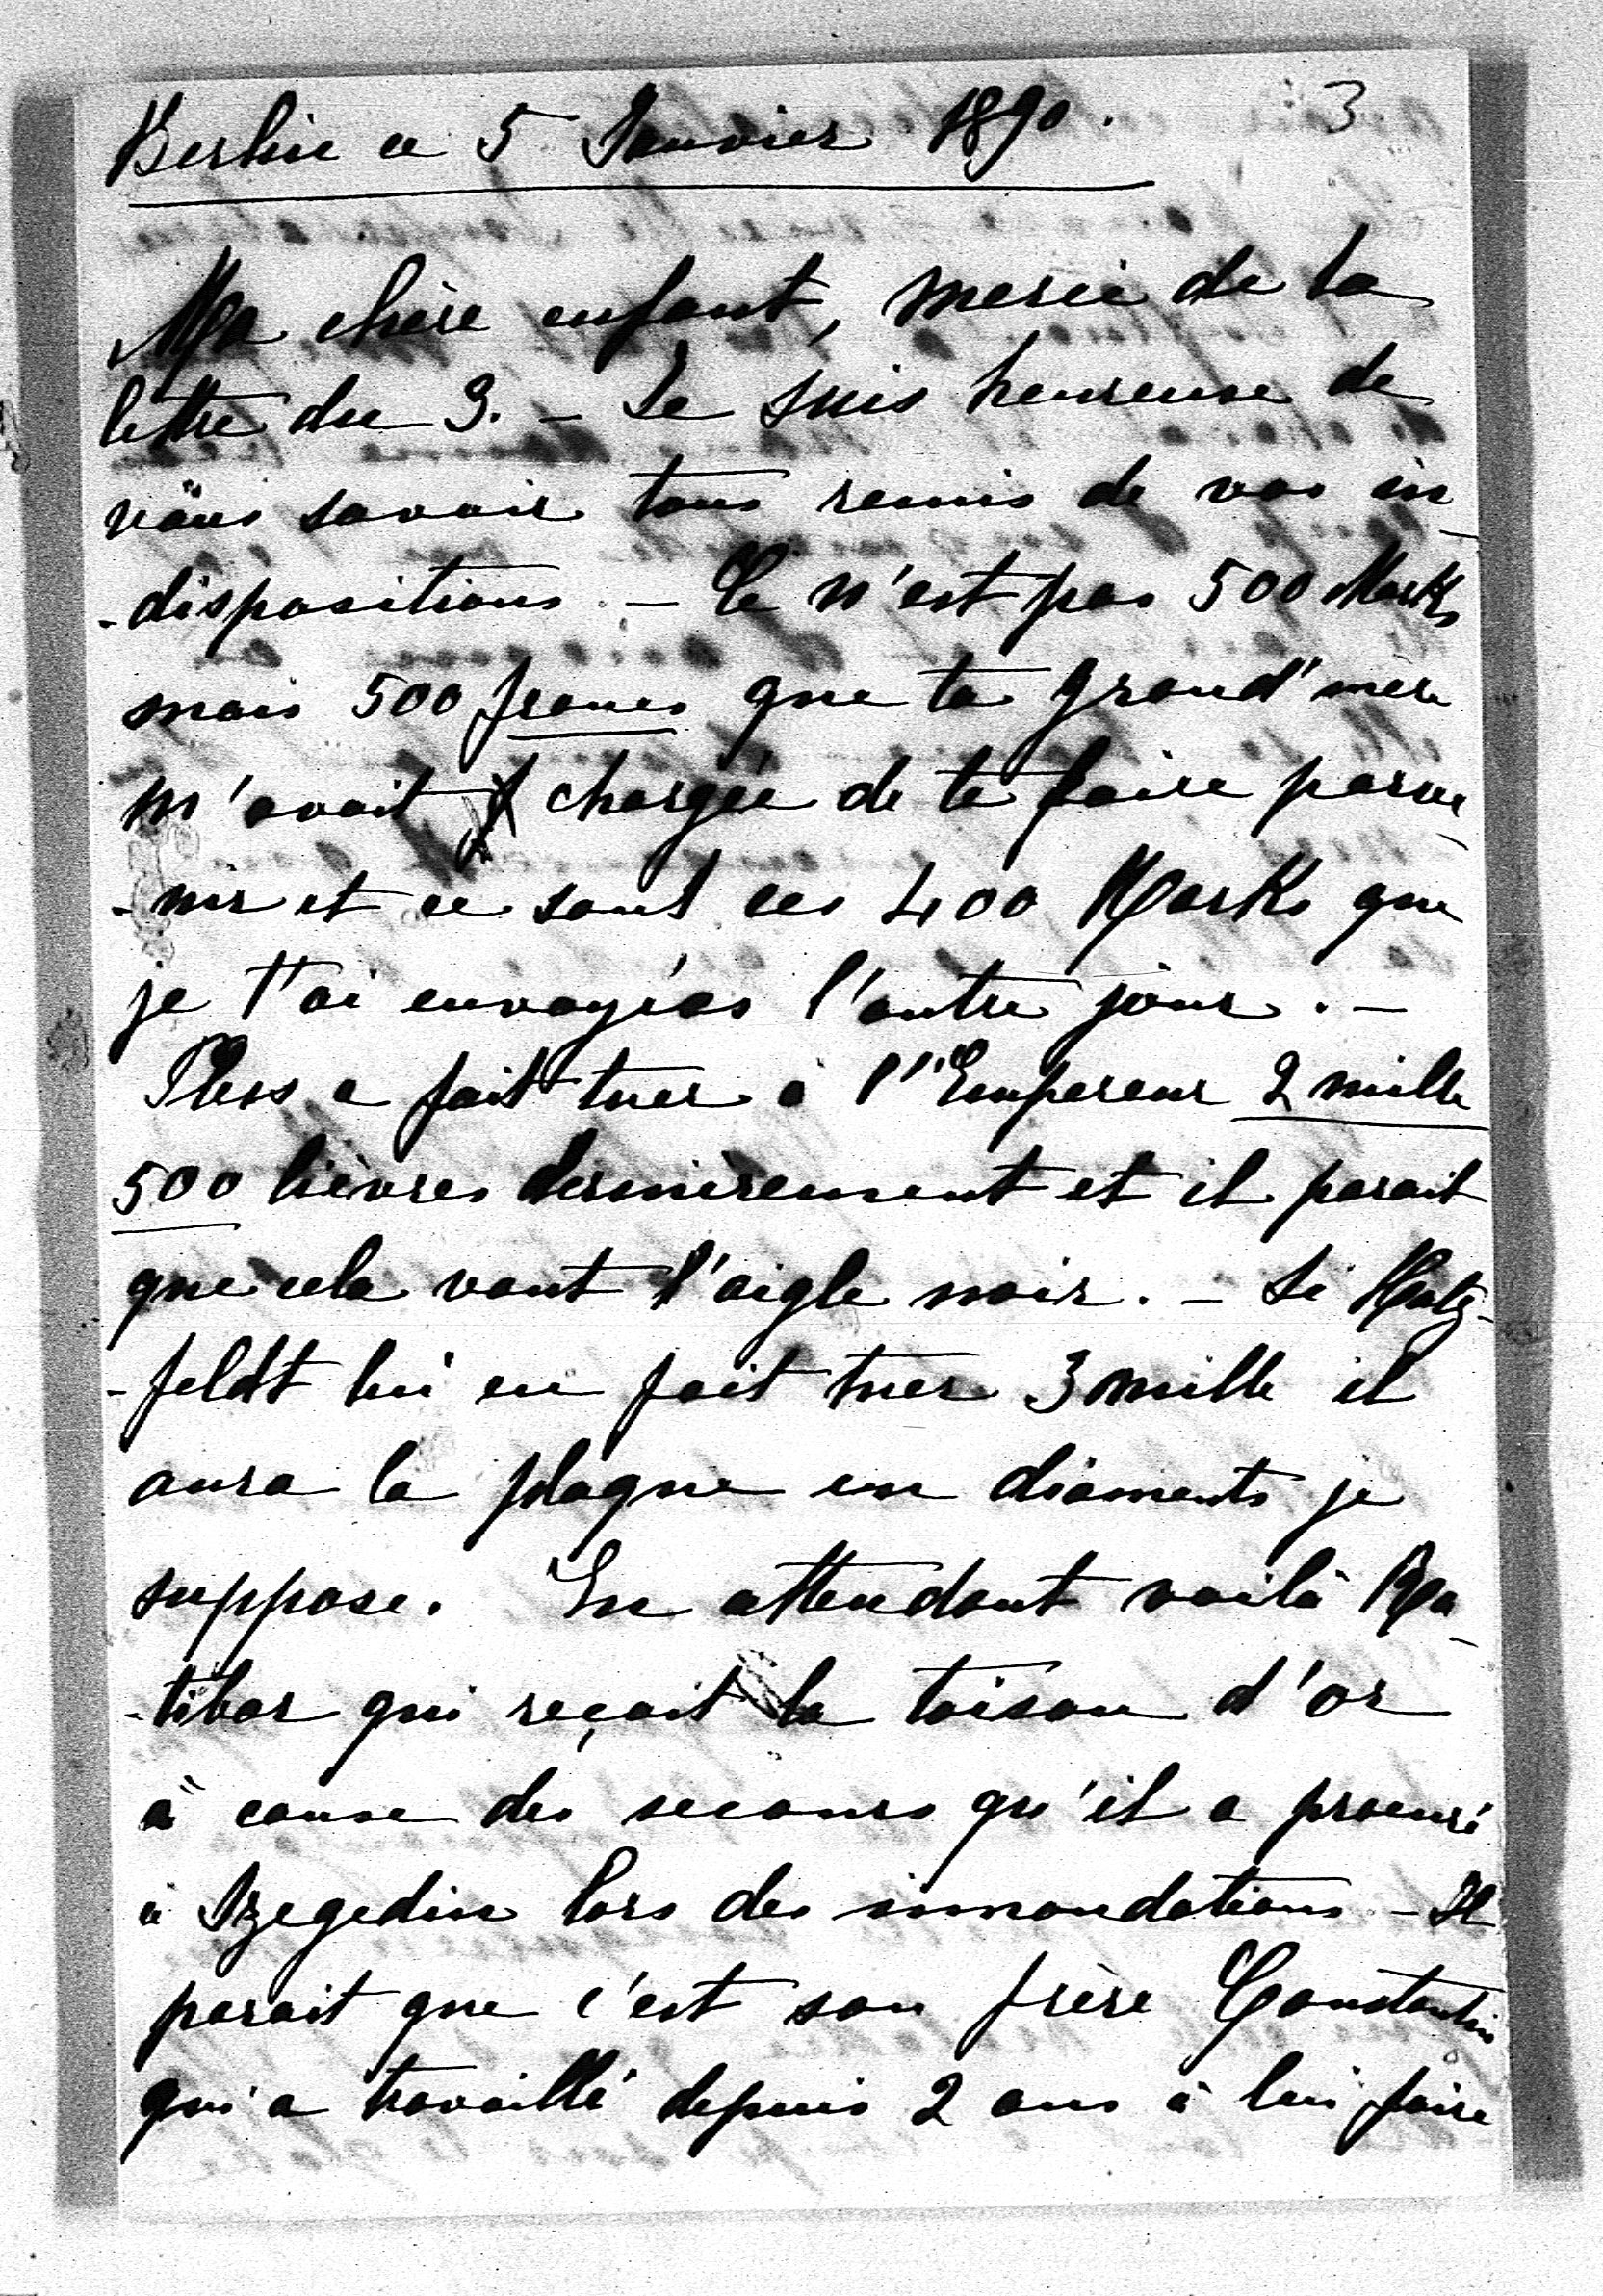 3
Berlin ce 5 Janvier 1890.
Ma chère enfant, merci de ta
lettre du 3. – Je suis heureuse de
vous savoir tous remis de vos in-
-dispositions. – Ce n'est pas 500 Marks
mais 500 francs que ta grand'mère
m'avait chargée de te faire parve-
-nir et ce sont ces 400 Marks que
je t'ai envoyées l'autre jour. –
Pless a fait tuer à l'Empereur 2 mille
500 lièvres dernièrement et il parait
que cela vaut l'aigle noir. – Si Hatz-
-feldt lui en fait tuer 3 mille il
aura la plaque en diamants je
suppose. En attendant voilà Ra-
-tibor qui reçoit la toison d'or
à cause des secours qu'il a procuré
à Szegedin lors des innondations – Il
parait que c'est son frère Constantin
qui a travaillé depuis 2 ans à lui faire